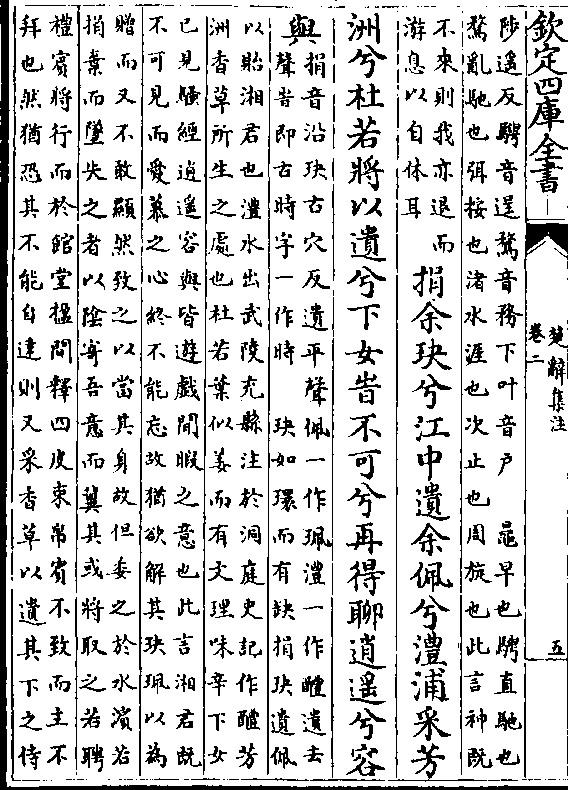 欽定四庫全書
楚辭集注
卷二
五
陟遥反騁音逞騖音務下叶音户　鼂早也騁直馳也
騖亂馳也弭按也渚水涯也次止也周旋也此言神既
不來則我亦退而
游息以自休耳
捐余玦兮江中遺余佩兮澧浦采芳
洲兮杜若將以遺兮下女旹不可兮再得聊逍遥兮容
與
捐音沿玦古穴反遺平聲佩一作珮澧一作醴遺去
聲旹即古時字一作時　玦如環而有缺捐玦遺佩
以貽湘君也澧水出武陵充縣注於洞庭史記作醴芳
洲香草所生之處也杜若葉似姜而有文理味辛下女
已見騷經逍遥容與皆遊戲閒暇之意也此言湘君既
不可見而愛慕之心終不能忘故猶欲解其玦珮以為
贈而又不敢顯然致之以當其身故但委之於水濱若
捐棄而墜失之者以陰寄吾意而冀其或將取之若聘
禮賓將行而於館堂楹間釋四皮束帛賓不致而主不
拜也然猶恐其不能自達則又采香草以遺其下之侍